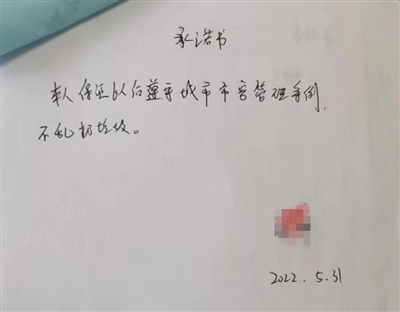 承诺书
本人保证以后遵守城市市容管理条例,
不乱扔垃圾。
2022.5.31